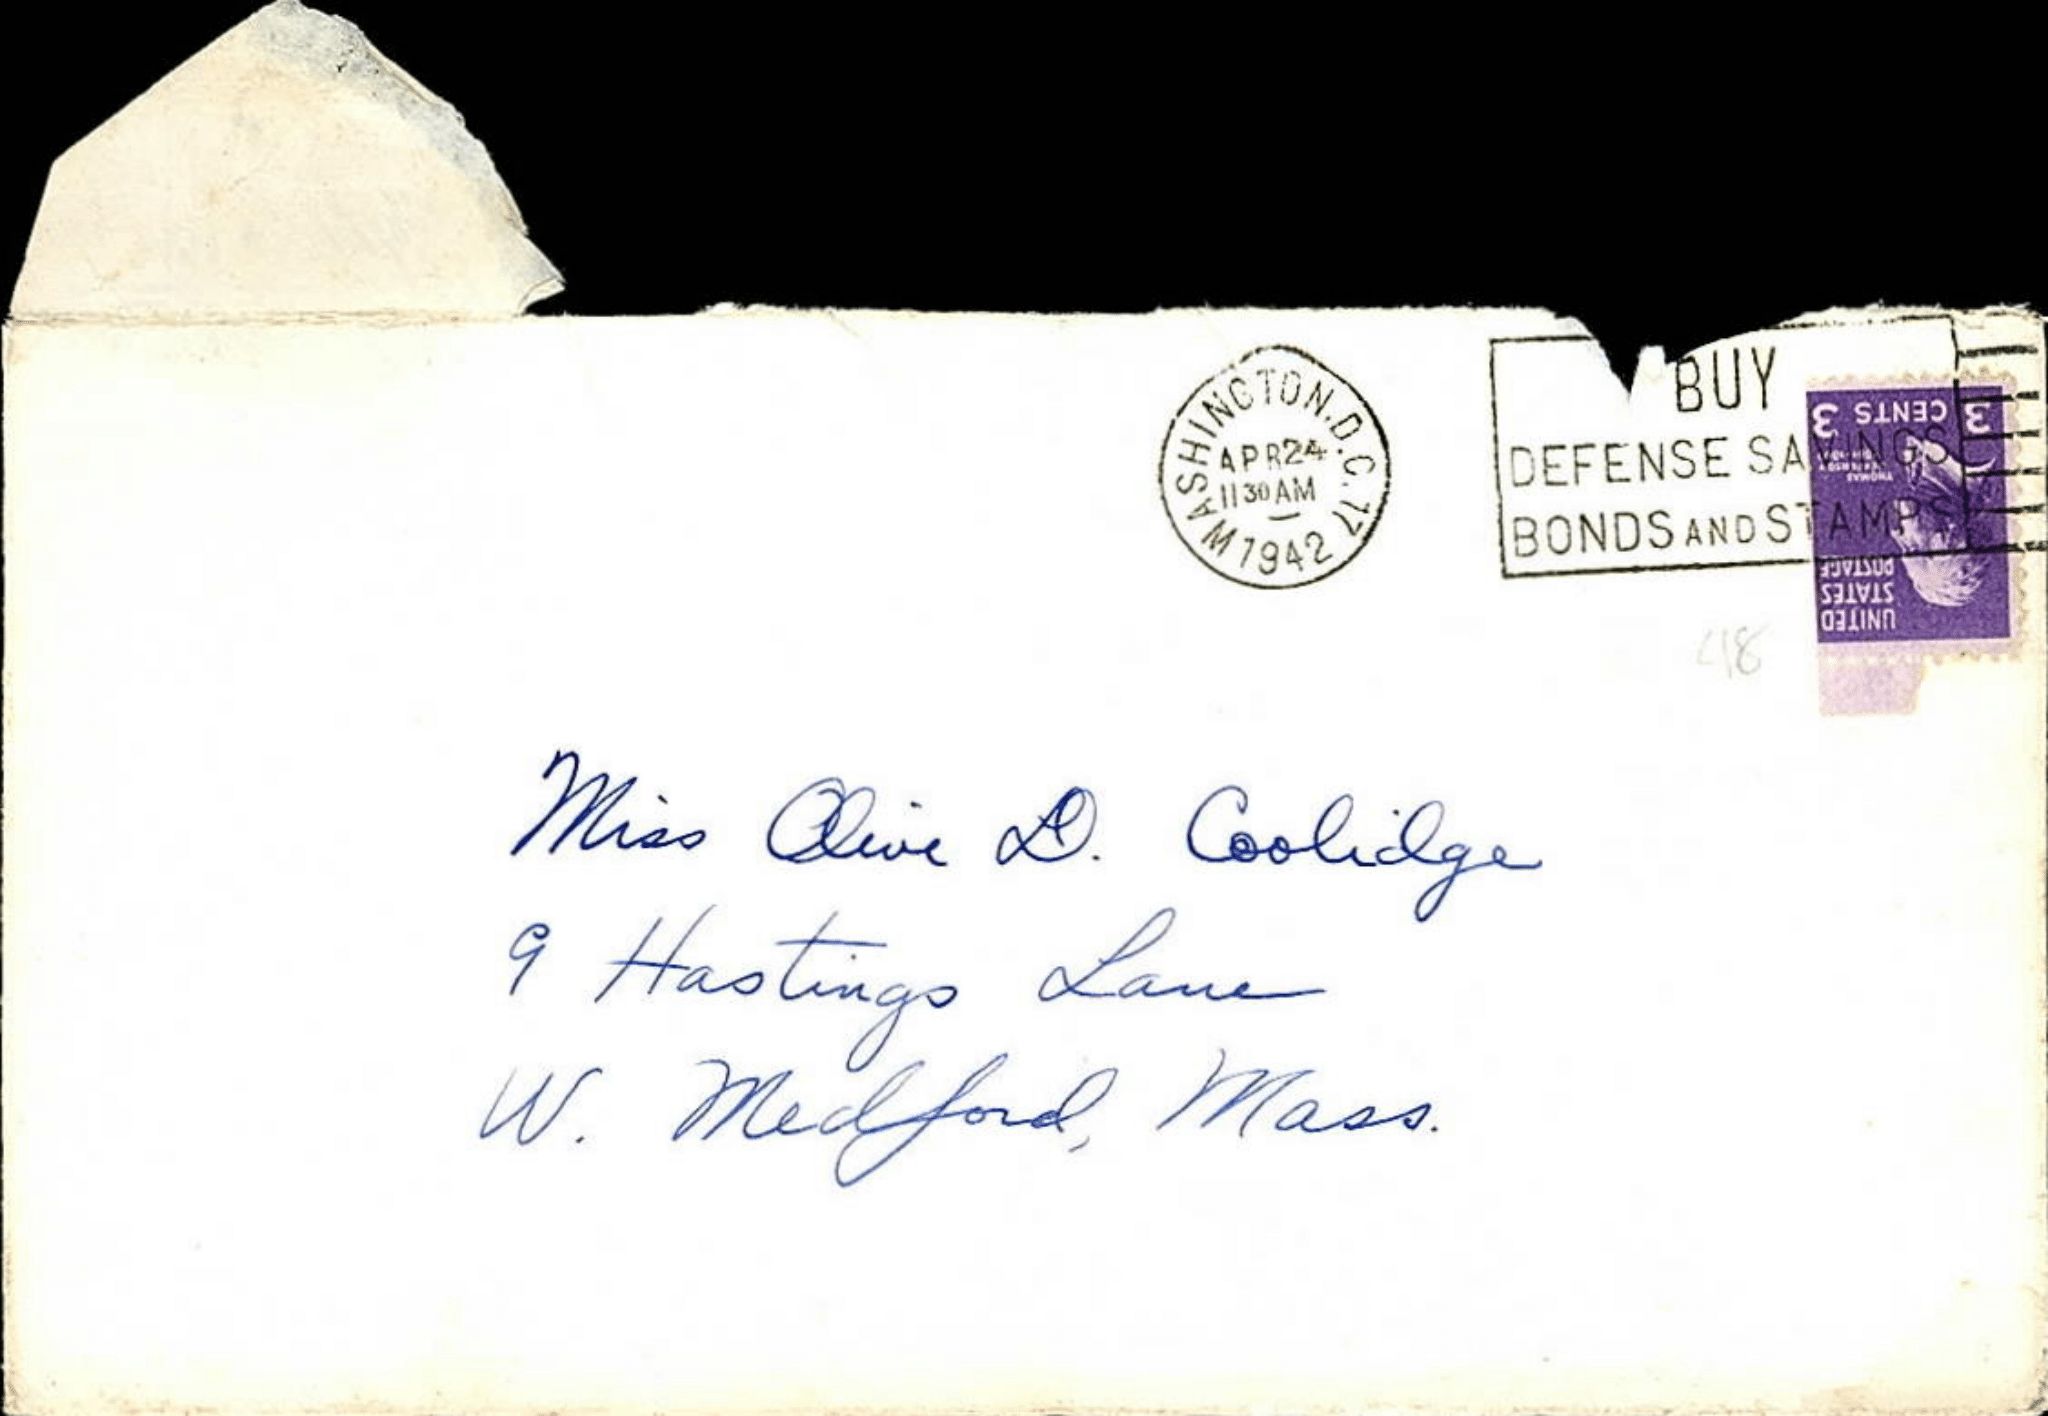 WASHINGTON, D.C. 17
APR 24
11 30 AM
M 1942
BUY
DEFENSE SAVINGS
BONDS AND STAMPS
3 CENTS 3
THOMAS
JEFFERSON
UNITED
STATES
POSTAGE
48
Miss Olive D. Coolidge
9 Hastings Lane
W. Medford, Mass.